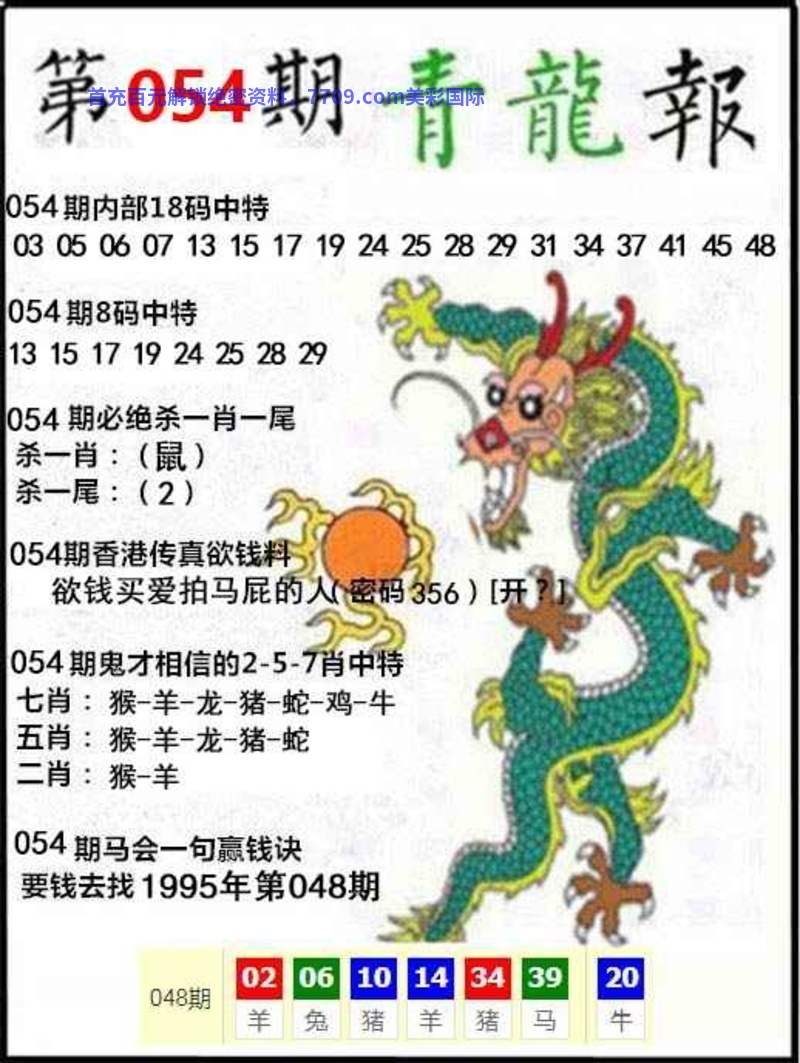 第054期青龍報
首充百元解锁绝密资料，7709.com美彩国际
054期内部18码中特
03 05 06 07 13 15 17 19 24 25 28 29 31 34 37 41 45 48
054期8码中特
13 15 17 19 24 25 28 29
054期必绝杀一肖一尾
杀一肖：（鼠）
杀一尾：（2）
054期香港传真欲钱料
欲钱买爱拍马屁的人(密码356)[开？]
054期鬼才相信的2-5-7肖中特
七肖：猴-羊-龙-猪-蛇-鸡-牛
五肖：猴-羊-龙-猪-蛇
二肖：猴-羊
054期马会一句赢钱诀
要钱去找1995年第048期
048期 02 06 10 14 34 39 20
羊 兔 猪 羊 猪 马 牛